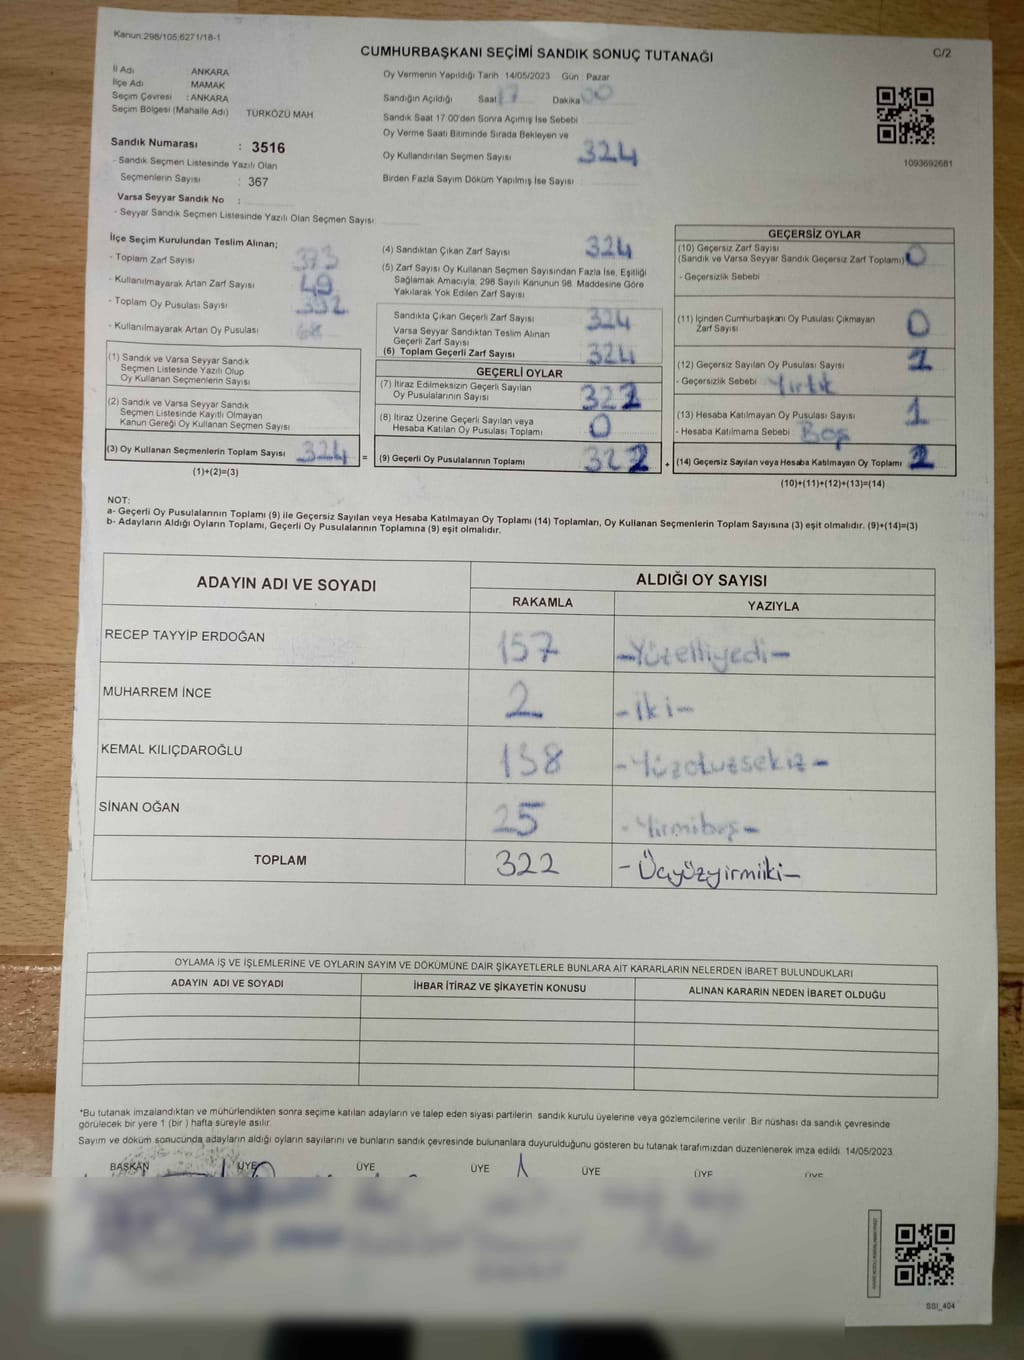 Kanun:298/105;6271/18-1
CUMHURBAŞKANI SEÇİMİ SANDIK SONUÇ TUTANAĞI
C/2
İl Adı ANKARA
İlçe Adı MAMAK
Seçim Çevresi : ANKARA
Seçim Bölgesi (Mahalle Adı) TÜRKÖZÜ MAH
Sandık Numarası : 3516
- Sandık Seçmen Listesinde Yazılı Olan
Seçmenlerin Sayısı : 367
Varsa Seyyar Sandık No :
- Seyyar Sandık Seçmen Listesinde Yazılı Olan Seçmen Sayısı
Oy Vermenin Yapıldığı Tarih 14/05/2023 Gün : Pazar
Sandığın Açıldığı Saat 17 Dakika 00
Sandık Saat 17.00'den Sonra Açımış İse Sebebi :
Oy Verme Saati Bitiminde Sırada Bekleyen ve
Oy Kullandırılan Seçmen Sayısı 324
Birden Fazla Sayım Döküm Yapılmış İse Sayısı
1093692681
İlçe Seçim Kurulundan Teslim Alınan;
- Toplam Zarf Sayısı 373
- Kullanılmayarak Artan Zarf Sayısı 49
- Toplam Oy Pusulası Sayısı
- Kullanılmayarak Artan Oy Pusulası 68
(1) Sandık ve Varsa Seyyar Sandık
Seçmen Listesinde Yazılı Olup
Oy Kullanan Seçmenlerin Sayısı
(2) Sandık ve Varsa Seyyar Sandık
Seçmen Listesinde Kayıtlı Olmayan
Kanun Gereği Oy Kullanan Seçmen Sayısı
(3) Oy Kullanan Seçmenlerin Toplam Sayısı 324 =
(1)+(2)=(3)
(4) Sandıktan Çıkan Zarf Sayısı 324
(5) Zarf Sayısı Oy Kullanan Seçmen Sayısından Fazla İse, Eşitliği
Sağlamak Amacıyla, 298 Sayılı Kanunun 98. Maddesine Göre
Yakılarak Yok Edilen Zarf Sayısı
Sandıkta Çıkan Geçerli Zarf Sayısı 324
Varsa Seyyar Sandıktan Teslim Alınan
Geçerli Zarf Sayısı
(6) Toplam Geçerli Zarf Sayısı 324
GEÇERLİ OYLAR
(7) İtiraz Edilmeksizin Geçerli Sayılan
Oy Pusulalarının Sayısı 322
(8) İtiraz Üzerine Geçerli Sayılan veya
Hesaba Katılan Oy Pusulası Toplamı 0
(9) Geçerli Oy Pusulalarının Toplamı 322 +
GEÇERSİZ OYLAR
(10) Geçersiz Zarf Sayısı
(Sandık ve Varsa Seyyar Sandık Geçersiz Zarf Toplamı) 0
- Geçersizlik Sebebi
(11) İçinden Cumhurbaşkanı Oy Pusulası Çıkmayan
Zarf Sayısı 0
(12) Geçersiz Sayılan Oy Pusulası Sayısı 1
- Geçersizlik Sebebi Yırtık
(13) Hesaba Katılmayan Oy Pusulası Sayısı 1
- Hesaba Katılmama Sebebi Boş
(14) Geçersiz Sayılan veya Hesaba Katılmayan Oy Toplamı 2
(10)+(11)+(12)+(13)=(14)
NOT:
a- Geçerli Oy Pusulalarının Toplamı (9) ile Geçersiz Sayılan veya Hesaba Katılmayan Oy Toplamı (14) Toplamları, Oy Kullanan Seçmenlerin Toplam Sayısına (3) eşit olmalıdır. (9)+(14)=(3)
b- Adayların Aldığı Oyların Toplamı, Geçerli Oy Pusulalarının Toplamına (9) eşit olmalıdır.
ADAYIN ADI VE SOYADI ALDIĞI OY SAYISI
RAKAMLA YAZIYLA
RECEP TAYYİP ERDOĞAN 157 -Yüzelliyedi-
MUHARREM İNCE 2 -iki-
KEMAL KILIÇDAROĞLU 138 -Yüzotuzsekiz-
SİNAN OĞAN 25 -Yirmibeş-
TOPLAM 322 -Üçyüzyirmiiki-
OYLAMA İŞ VE İŞLEMLERİNE VE OYLARIN SAYIM VE DÖKÜMÜNE DAİR ŞİKAYETLERLE BUNLARA AİT KARARLARIN NELERDEN İBARET BULUNDUKLARI
ADAYIN ADI VE SOYADI İHBAR İTİRAZ VE ŞİKAYETİN KONUSU ALINAN KARARIN NEDEN İBARET OLDUĞU
*Bu tutanak imzalandıktan ve mühürlendikten sonra seçime katılan adayların ve talep eden siyasi partilerin sandık kurulu üyelerine veya gözlemcilerine verilir. Bir nüshası da sandık çevresinde
görülecek bir yere 1 (bir ) hafta süreyle asılır.
Sayım ve döküm sonucunda adayların aldığı oyların sayılarını ve bunların sandık çevresinde bulunanlara duyurulduğunu gösteren bu tutanak tarafımızdan düzenlenerek imza edildi. 14/05/2023
BAŞKAN ÜYE ÜYE ÜYE ÜYE ÜYE ÜYE
SSI_404